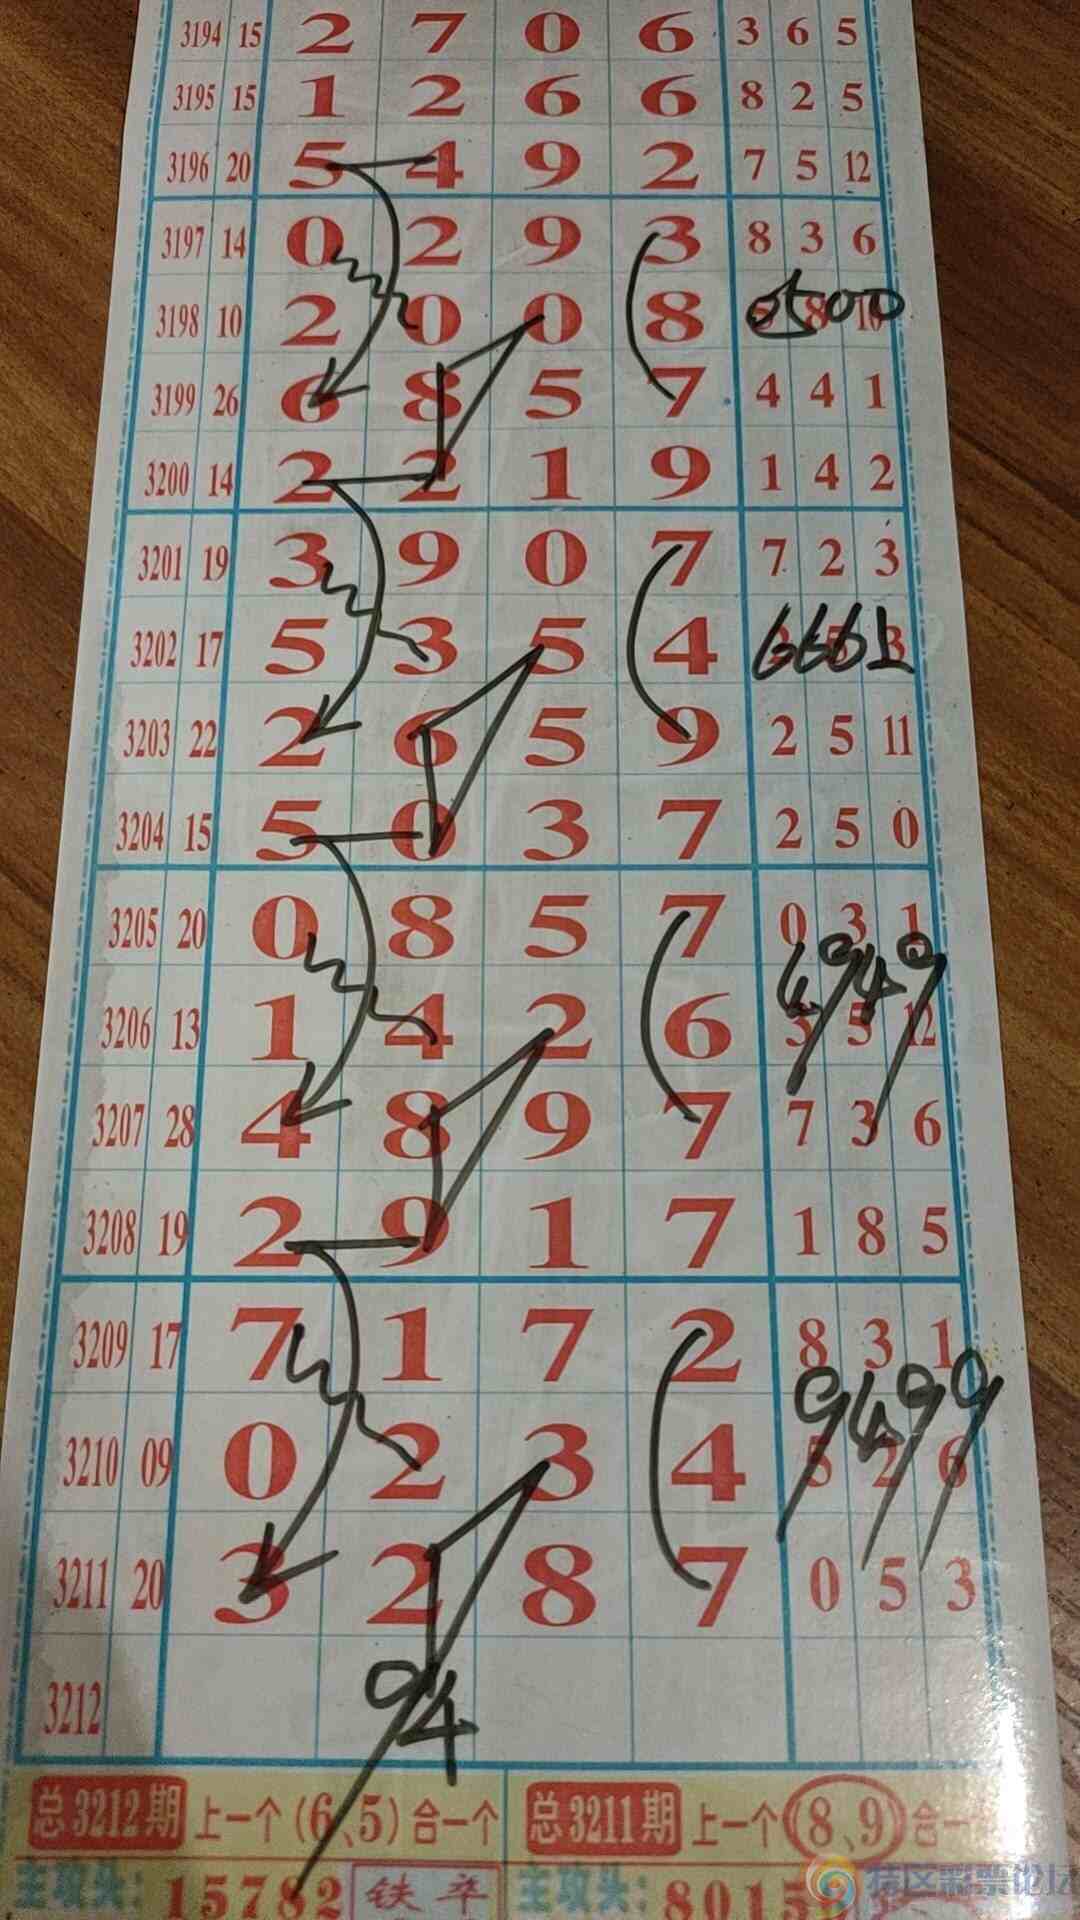 3194 15 2 7 0 6 3 6 5
3195 15 1 2 6 6 8 2 5
3196 20 5 4 9 2 7 5 12
3197 14 0 2 9 3 8 3 6
3198 10 2 0 0 8 8 10
0500
3199 26 6 8 5 7 4 4 1
3200 14 2 2 1 9 1 4 2
3201 19 3 9 0 7 7 2 3
3202 17 5 3 5 4 5 3
6661
3203 22 2 6 5 9 2 5 11
3204 15 5 0 3 7 2 5 0
3205 20 0 8 5 7 0 3 1
4949
3206 13 1 4 2 6 5 12
3207 28 4 8 9 7 7 3 6
3208 19 2 9 1 7 1 8 5
3209 17 7 1 7 2 8 3 1
9499
3210 09 0 2 3 4 2 6
3211 20 3 2 8 7 0 5 3
3212
94
总3212期 上一个(6、5)合一个 总3211期 上一个(8、9)合一
主攻头: 15782 铁卒 主攻头: 8015
特区彩票论坛